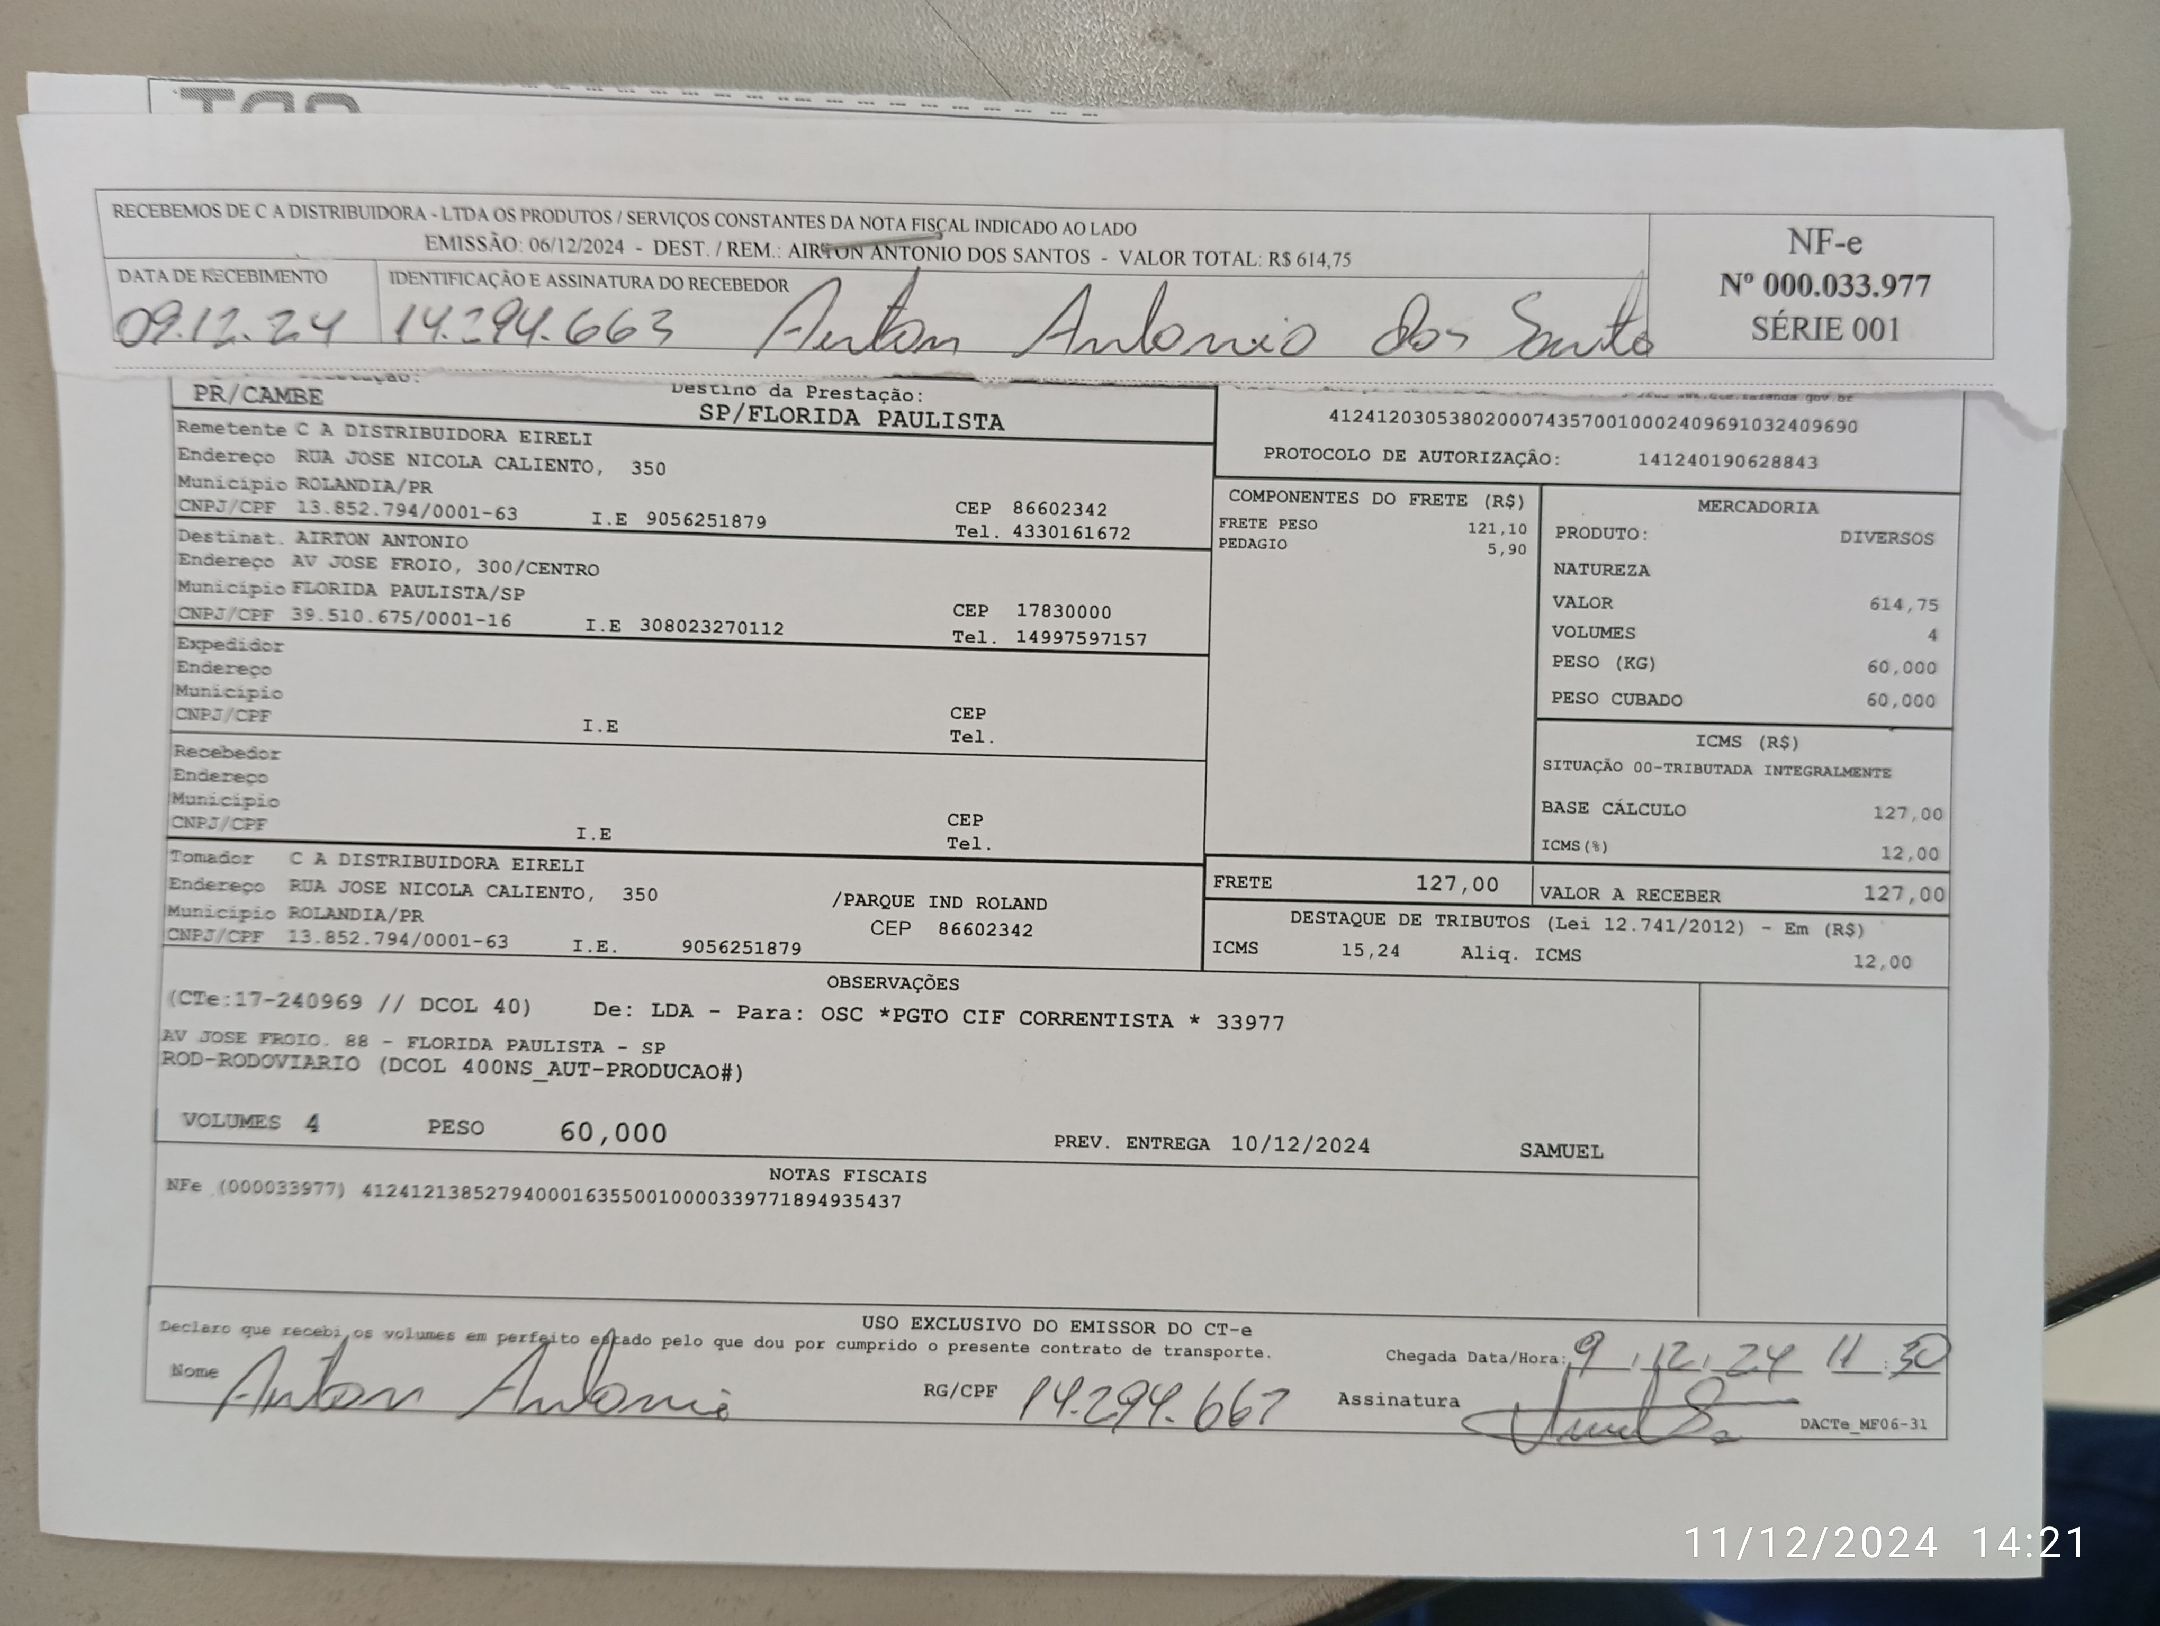 RECEBEMOS DE C A DISTRIBUIDORA - LTDA OS PRODUTOS / SERVIÇOS CONSTANTES DA NOTA FISCAL INDICADO AO LADO
EMISSÃO: 06/12/2024 - DEST. / REM.: AIRTON ANTONIO DOS SANTOS - VALOR TOTAL: R$ 614,75
NF-e
Nº 000.033.977
SÉRIE 001
DATA DE RECEBIMENTO
IDENTIFICAÇÃO E ASSINATURA DO RECEBEDOR
09.12.24 14.294.663 Airton Antonio dos Santos
PR/CAMBE
Destino da Prestação:
SP/FLORIDA PAULISTA
41241203053802000743570010002409691032409690
PROTOCOLO DE AUTORIZAÇÃO: 141240190628843
Remetente C A DISTRIBUIDORA EIRELI
Endereço RUA JOSE NICOLA CALIENTO, 350
Município ROLANDIA/PR
CNPJ/CPF 13.852.794/0001-63 I.E 9056251879
CEP 86602342
Tel. 4330161672
Destinat. AIRTON ANTONIO
Endereço AV JOSE FROIO, 300/CENTRO
Município FLORIDA PAULISTA/SP
CNPJ/CPF 39.510.675/0001-16 I.E 308023270112
CEP 17830000
Tel. 14997597157
Expedidor
Endereço
Município
CNPJ/CPF I.E
CEP
Tel.
Recebedor
Endereço
Município
CNPJ/CPF I.E
CEP
Tel.
Tomador C A DISTRIBUIDORA EIRELI
Endereço RUA JOSE NICOLA CALIENTO, 350 /PARQUE IND ROLAND
Município ROLANDIA/PR CEP 86602342
CNPJ/CPF 13.852.794/0001-63 I.E. 9056251879
COMPONENTES DO FRETE (R$)
FRETE PESO 121,10
PEDAGIO 5,90
MERCADORIA
PRODUTO: DIVERSOS
NATUREZA
VALOR 614,75
VOLUMES 4
PESO (KG) 60,000
PESO CUBADO 60,000
ICMS (R$)
SITUAÇÃO 00-TRIBUTADA INTEGRALMENTE
BASE CÁLCULO 127,00
ICMS(%) 12,00
FRETE 127,00 VALOR A RECEBER 127,00
DESTAQUE DE TRIBUTOS (Lei 12.741/2012) - Em (R$)
ICMS 15,24 Aliq. ICMS 12,00
OBSERVAÇÕES
(CTe:17-240969 // DCOL 40) De: LDA - Para: OSC *PGTO CIF CORRENTISTA * 33977
AV JOSE FROIO. 88 - FLORIDA PAULISTA - SP
ROD-RODOVIARIO (DCOL 400NS_AUT-PRODUCAO#)
VOLUMES 4 PESO 60,000 PREV. ENTREGA 10/12/2024 SAMUEL
NOTAS FISCAIS
NFe (000033977) 41241213852794000163550010000339771894935437
USO EXCLUSIVO DO EMISSOR DO CT-e
Declaro que recebi os volumes em perfeito estado pelo que dou por cumprido o presente contrato de transporte.
Chegada Data/Hora: 9.12.24 11:30
Nome Airton Antonio RG/CPF 14.294.667 Assinatura
DACTe_MF06-31
11/12/2024 14:21